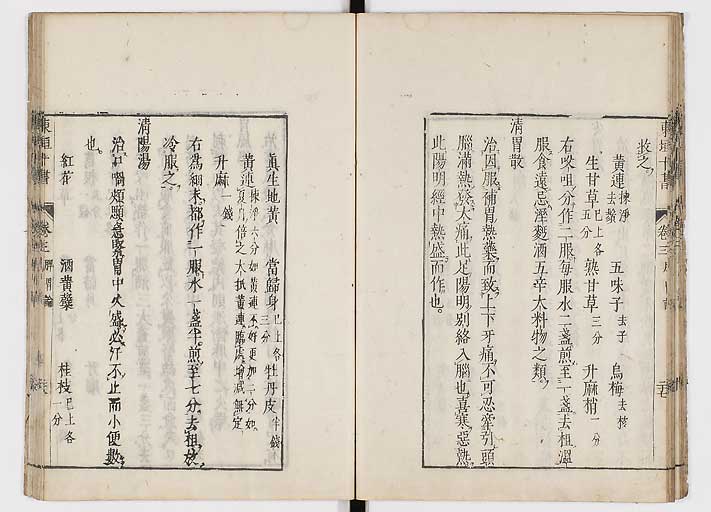 收之
黃連揀淨去鬚 五味子去子 烏梅去核
生甘草已上各五分 熟甘草三分 升麻梢一分
右㕮咀分作二服每服水二盞煎至一盞去柤溫
服食遠忌溼麪酒五辛大料物之類
清胃散
治因服補胃熱藥而致上下牙痛不可忍牽引頭
腦滿熱發大痛此足陽明別絡入腦也喜寒惡熱
此陽明經中熱盛而作也
東垣十書 卷三
眞生地黃 當歸身已上各三分 牡丹皮半錢
黃連揀淨六分如黃連不好更加二分如夏月倍之大抵黃連臨處增減無定
升麻一錢
右爲細末都作一服水一盞半煎至七分去柤放
冷服之
清陽湯
治口喎頰顋急緊胃中火盛必汗不止而小便數
也
紅花 酒黃蘗 桂枝已上各一分
東垣十書 卷三 脾胃論